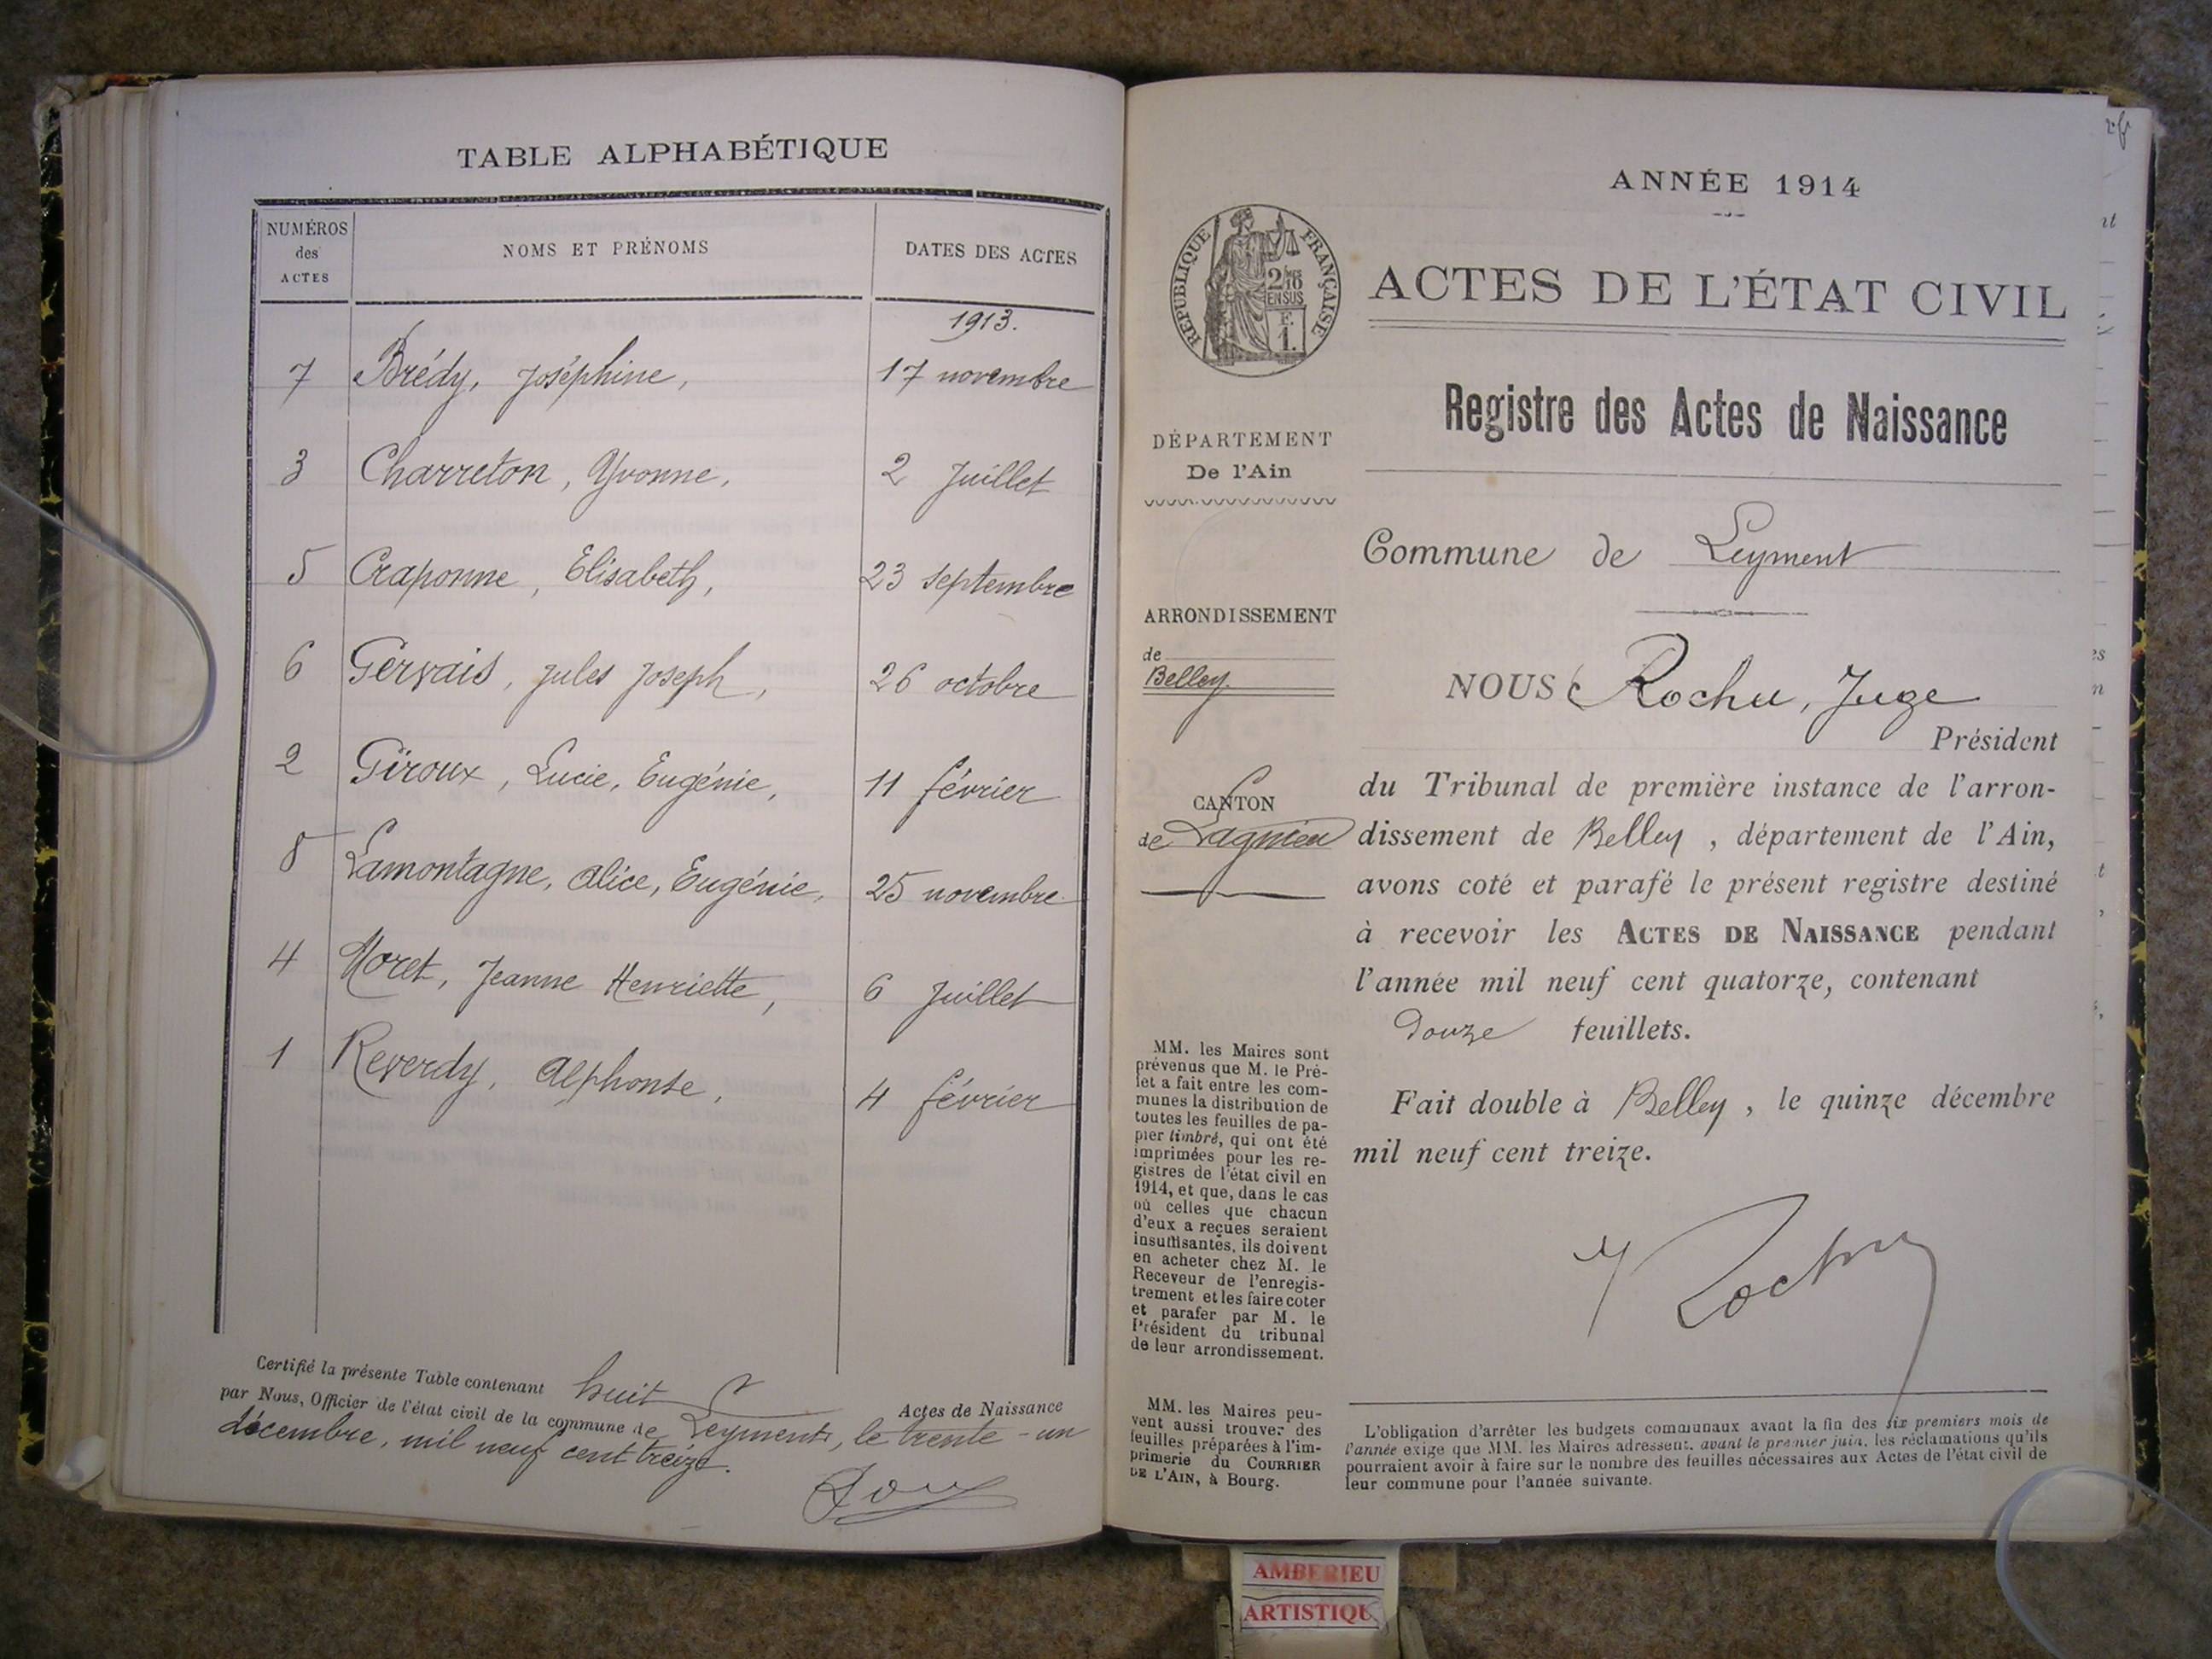 TABLE ALPHABÉTIQUE
NUMÉROS
des
ACTES
NOMS ET PRÉNOMS
DATES DES ACTES
1913.
7 Brédy, Joséphine, 17 novembre
3 Charreton, Yvonne, 2 Juillet
5 Craponne, Elisabeth, 23 septembre
6 Gervais, Jules Joseph, 26 octobre
2 Giroux, Lucie, Eugénie, 11 février
8 Lamontagne, Alice, Eugénie, 25 novembre
4 Moret, Jeanne Henriette, 6 Juillet
1 Reverdy, Alphonse, 4 février
Certifié la présente Table contenant huit Actes de Naissance
par Nous, Officier de l'état civil de la commune de Leyment, le trente-un
décembre, mil neuf cent treize.
ANNÉE 1914
RÉPUBLIQUE FRANÇAISE
2/10
EN SUS
F.
1.
ACTES DE L'ÉTAT CIVIL
Registre des Actes de Naissance
DÉPARTEMENT
De l'Ain
Commune de Leyment
ARRONDISSEMENT
de
Belley
CANTON
de Lagnieu
NOUS Rochu, Juge
Président
du Tribunal de première instance de l'arron-
dissement de Belley, département de l'Ain,
avons coté et parafé le présent registre destiné
à recevoir les ACTES DE NAISSANCE pendant
l'année mil neuf cent quatorze, contenant
douze feuillets.
Fait double à Belley, le quinze décembre
mil neuf cent treize.
MM. les Maires sont
prévenus que M. le Pré-
fet a fait entre les com-
munes la distribution de
toutes les feuilles de pa-
pier timbré, qui ont été
imprimées pour les re-
gistres de l'état civil en
1914, et que, dans le cas
où celles que chacun
d'eux a reçues seraient
insuffisantes, ils doivent
en acheter chez M. le
Receveur de l'enregis-
trement et les faire coter
et parafer par M. le
Président du tribunal
de leur arrondissement.
MM. les Maires peu-
vent aussi trouver des
feuilles préparées à l'im-
primerie du COURRIER
DE L'AIN, à Bourg.
L'obligation d'arrêter les budgets communaux avant la fin des six premiers mois de
l'année exige que MM. les Maires adressent, avant le premier juin, les réclamations qu'ils
pourraient avoir à faire sur le nombre des feuilles nécessaires aux Actes de l'état civil de
leur commune pour l'année suivante.
AMBERIEU
ARTISTIQU